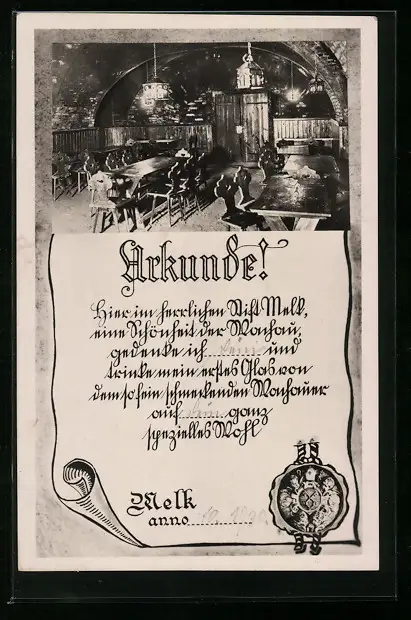 Urkunde!
Hier im herrlichen Stift Melk,
eine Schönheit der Wachau,
gedenke ich dein und
trinke mein erstes Glas von
dem so fein schmeckenden Wachauer
auf dein ganz
spezielles Wohl
Melk
anno